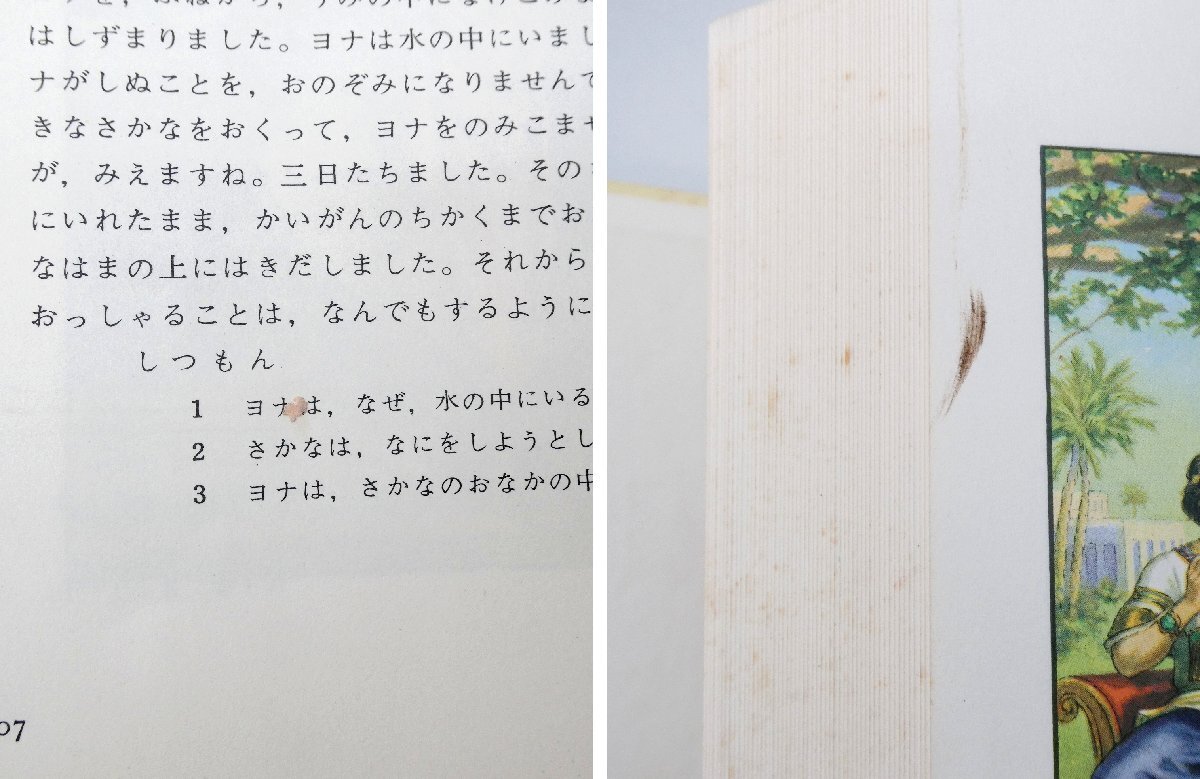 はしずまりました。ヨナは水の中にいまし
ナがしぬことを，おのぞみになりませんで
きなさかなをおくって，ヨナをのみこませ
が，みえますね。三日たちました。その
にいれたまま，かいがんのちかくまでお
なはまの上にはきだしました。それから
おっしゃることは，なんでもするように
しつもん
1 ヨナは，なぜ，水の中にいる
2 さかなは，なにをしようとし
3 ヨナは，さかなのおなかの中
07